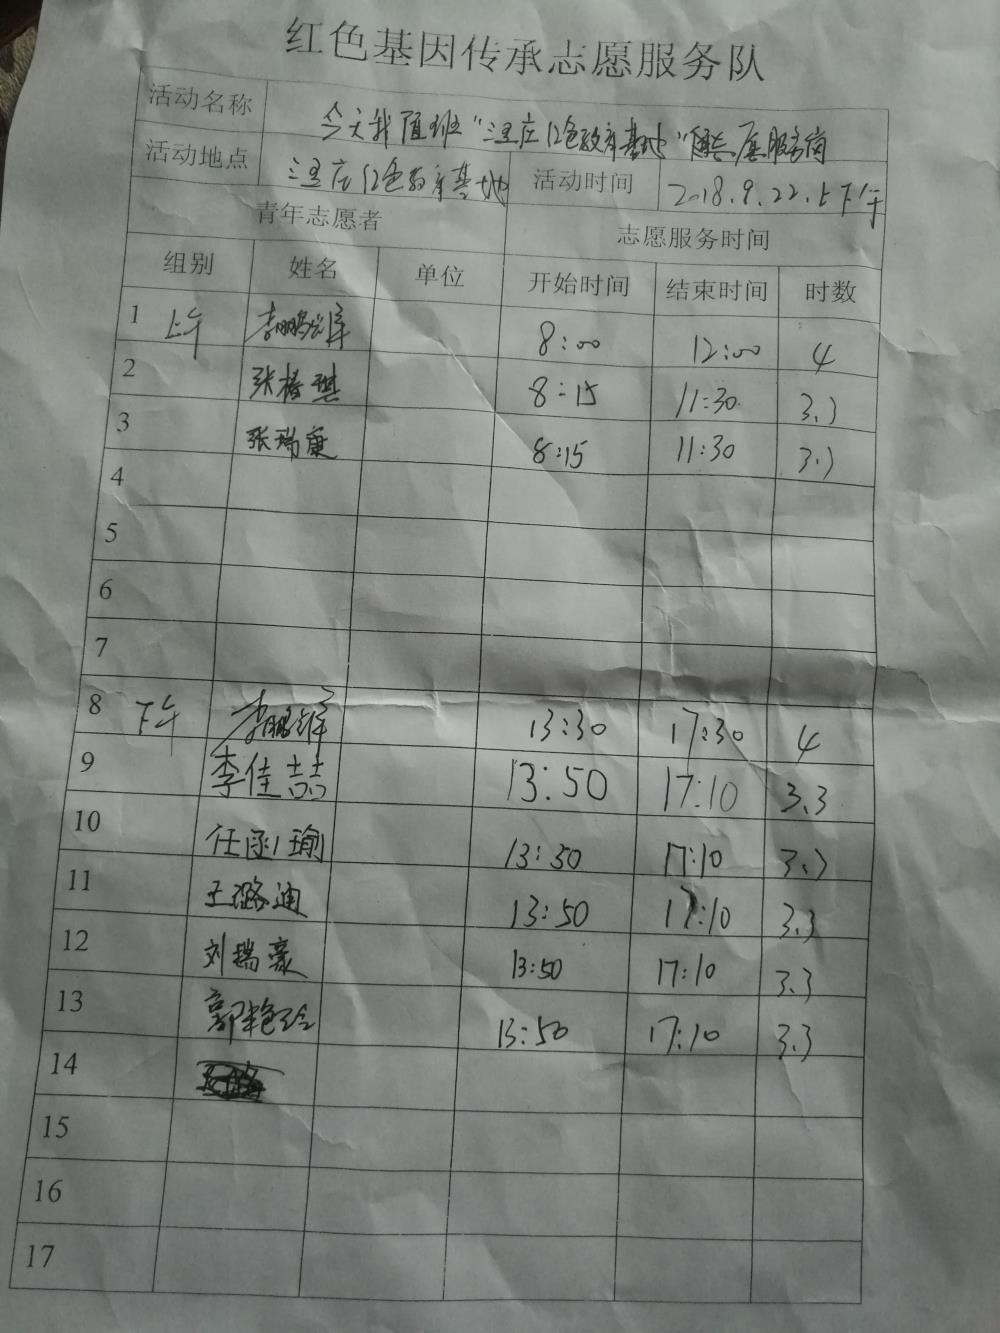 红色基因传承志愿服务队
活动名称 今天我值班"三里庄红色教育基地"志愿服务岗
活动地点 三里庄红色教育基地 活动时间 2018.9.22.上下午
青年志愿者 志愿服务时间
组别 姓名 单位 开始时间 结束时间 时数
1 上午 李鹏 8:00 12:00 4
2 张椿琪 8:15 11:30 3.3
3 张瑞庚 8:15 11:30 3.3
4
5
6
7
8 下午 李鹏 13:30 17:30 4
9 李佳喆 13:50 17:10 3.3
10 任函瑜 13:50 17:10 3.3
11 王璐迪 13:50 17:10 3.3
12 刘瑞豪 13:50 17:10 3.3
13 郭艳玲 13:50 17:10 3.3
14
15
16
17